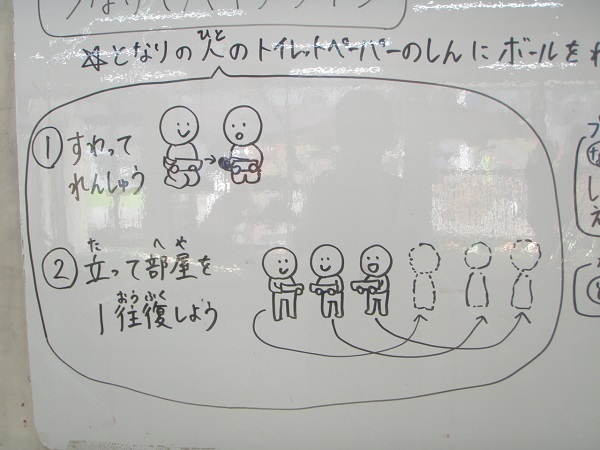 となりの人のトイレットペーパーのしんにボールを
ひと
① すわって
れんしゅう
② 立って部屋を
た へ や
1往復しよう
おうふく